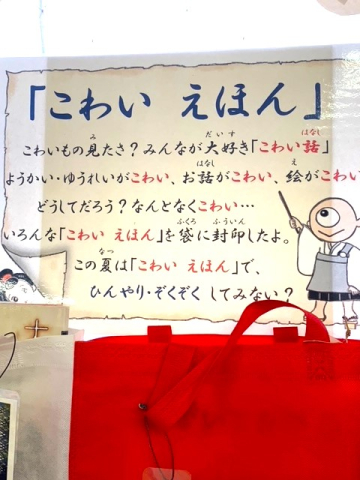 「こわい えほん」
こわいもの見たさ？みんなが大好き「こわい話」
ようかい・ゆうれいがこわい、お話がこわい、絵がこわい
どうしてだろう？なんとなくこわい…
いろんな「こわい えほん」を袋に封印したよ。
この夏は「こわい えほん」で、
ひんやり・ぞくぞく してみない？